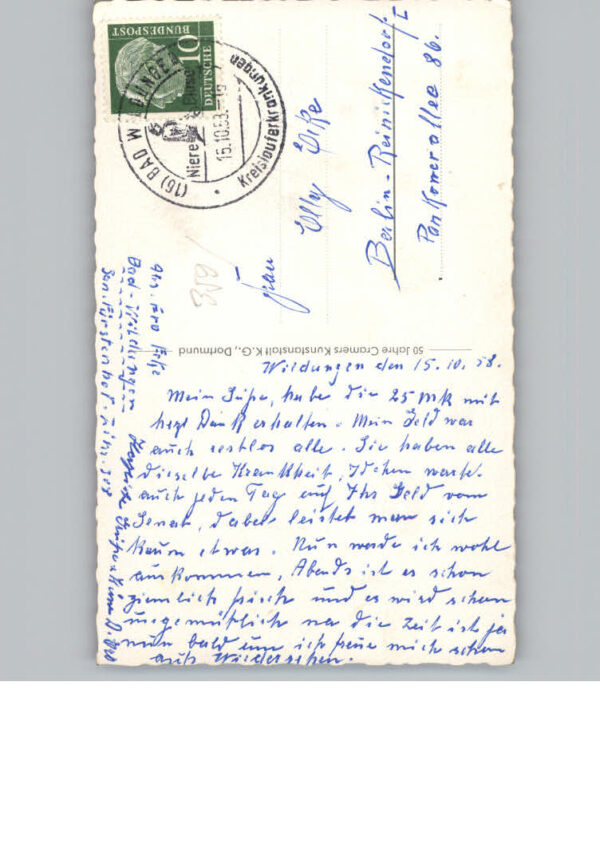 DEUTSCHE
BUNDESPOST
10
(16) BAD WILDUNGEN
Niere
15.10.58.-19
Kreislauferkrankungen
Frau
Elly
Berlin-Reinickendorf I
Pankowerallee 86.
359
Bad-Wildungen
50 Jahre Cramers Kunstanstalt K.G., Dortmund
Wildungen den 15.10.58.
Mein Süße, habe die 25 MK mit
herzl Dank erhalten. Mein Geld war
auch restlos alle. Sie haben alle
dieselbe Krankheit, Idchen wartet
auch jeden Tag auf Ihr Geld vom
Senat, dabei leistet man sich
kaum etwas. Nun werde ich wohl
auskommen, Abends ist es schon
ziemlich frisch und es wird schon
ungemütlich na die Zeit ist ja
nun bald um ich freue mich schon
aufs Wiedersehen.